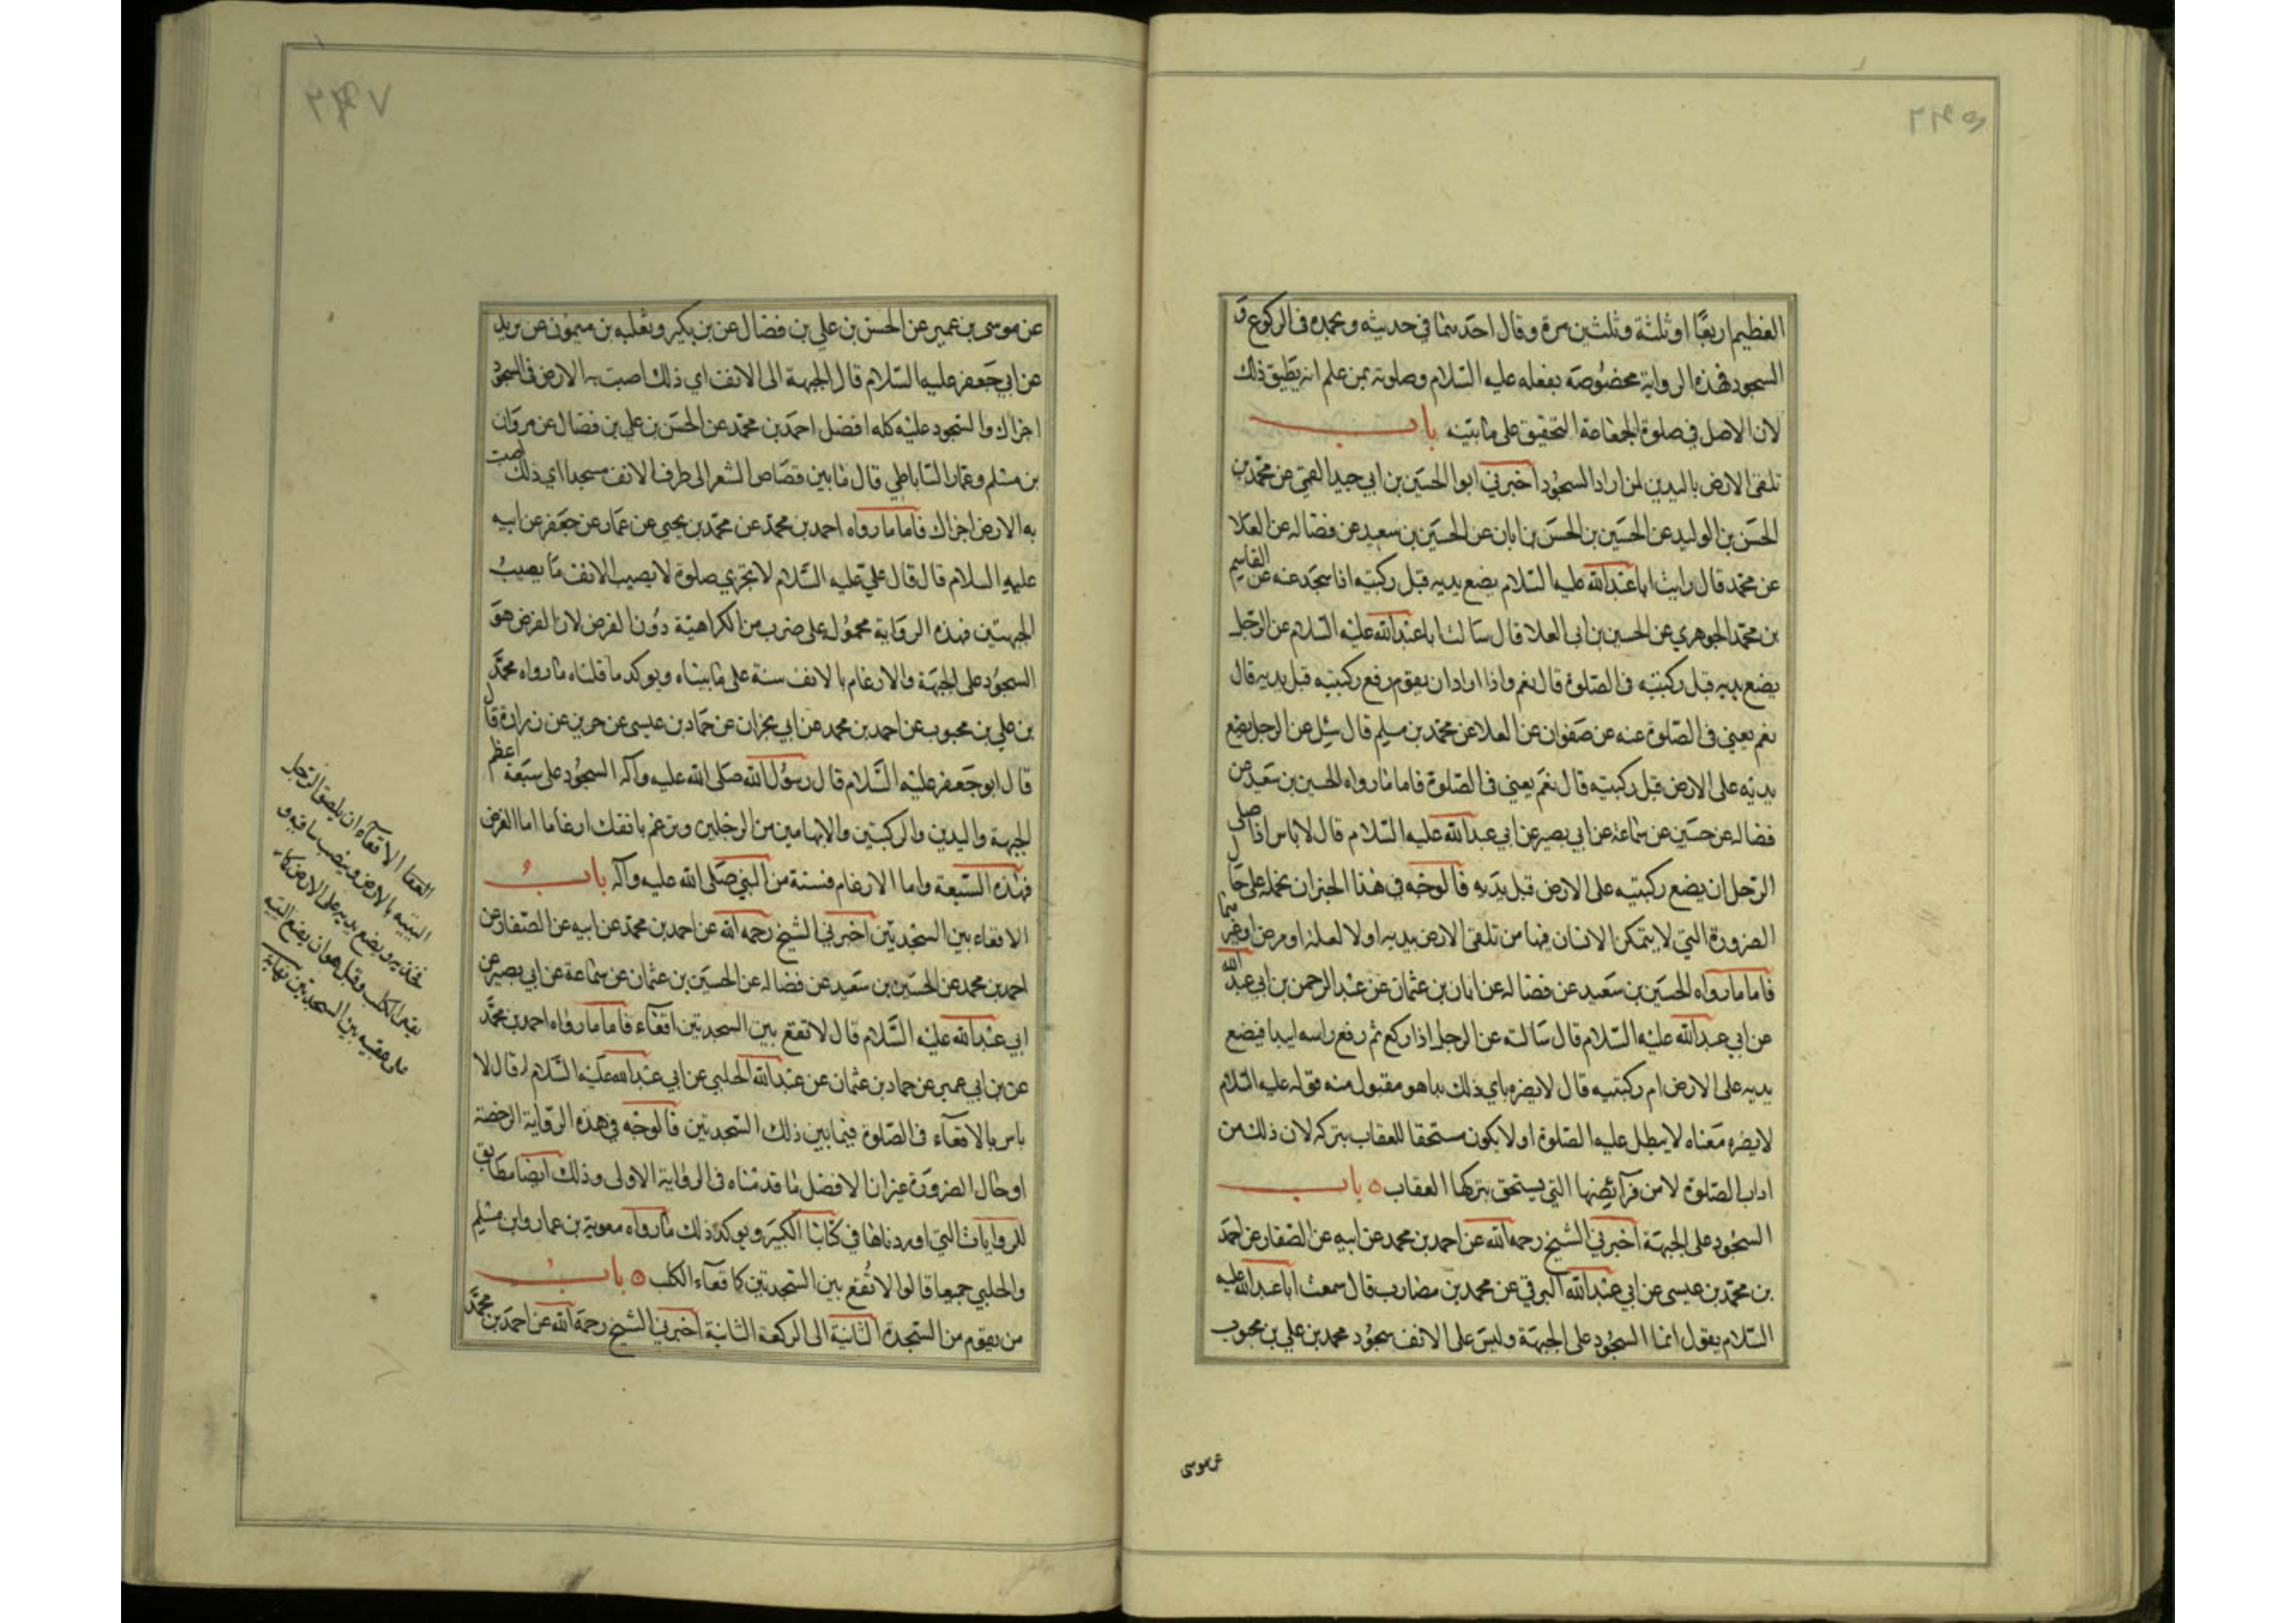 العظيم اربعا او ثلثة وثلثين مرة وقال احدهما في حديثه وبحمده في الركوع و
السجود فهذه الرواية مخصوصة بفعله عليه السلام وصلوته بمن علم انه يطيق ذلك
لان الاصل في صلوة الجماعة التخفيف على ما بينه باب
تلقى الارض باليدين لمن اراد السجود اخبرني ابوا الحسين بن ابي جيد القمي عن محمد بن
الحسن بن الوليد عن الحسين بن الحسن بن ابان عن الحسين بن سعيد عن فضاله عن العلا
عن محمد قال رايت ابا عبد الله عليه السلام يضع يديه قبل ركبتيه اذا سجد عنه عن القاسم
بن محمد الجوهري عن الحسين بن ابي العلا قال سالت ابا عبد الله عليه السلام عن الرجل
يضع يديه قبل ركبتيه في الصلوة قال نعم واذا اراد ان يقوم رفع ركبتيه قبل يديه قال
نعم يعني في الصلوة عنه عن صفوان عن العلا عن محمد بن مسلم قال سئل عن الرجل يضع
يديه على الارض قبل ركبتيه قال نعم يعني في الصلوة فاما ما رواه الحسين بن سعيد عن
فضاله عن حسين عن سماعة عن ابي بصير عن ابي عبد الله عليه السلام قال لا باس اذا صلى
الرجل ان يضع ركبتيه على الارض قبل يديه فالوجه في هذا الخبر ان نحمله على حال
الضرورة التي لا يتمكن الانسان فيها من تلقى الارض بيديه اولا لعلة او مرض او غيرهما
فاما ما رواه الحسين بن سعيد عن فضاله عن ابان بن عثمان عن عبد الرحمن بن ابي عبد الله
عن ابي عبد الله عليه السلام قال سالته عن الرجل اذا ركع ثم رفع راسه ايبدا فيضع
يديه على الارض ام ركبتيه قال لا يضره باي ذلك بدا هو مقبول منه فقوله عليه السلام
لا يضره معناه لا يبطل عليه الصلوة او لا يكون مستحقا للعقاب بتركه لان ذلك من
اداب الصلوة لا من فرائضها التي يستحق بتركها العقاب ٥ باب
السجود على الجبهة اخبرني الشيخ رحمه الله عن احمد بن محمد عن ابيه عن الصفار عن احمد
بن محمد بن عيسى عن ابي عبد الله البرقي عن محمد بن مضارب قال سمعت ابا عبد الله عليه
السلام يقول انما السجود على الجبهة وليس على الانف سجود محمد بن علي بن محبوب
عن موسى
عن موسى بن عمير عن الحسن بن علي بن فضال عن بن بكير وثعلبه بن ميمون عن بريد
عن ابي جعفر عليه السلام قال الجبهة الى الانف اي ذلك اصبت به الارض في السجود
اجزاك والسجود عليه كله افضل احمد بن محمد عن الحسن بن علي بن فضال عن مروان
بن مسلم وعمار الساباطي قال ما بين قصاص الشعر الى طرف الانف مسجد اي ذلك اصبت
به الارض اجزاك فاما ما رواه احمد بن محمد عن محمد بن يحيى عن عمار عن جعفر عن ابيه
عليهم السلام قال قال علي عليه السلام لا تجزي صلوة لا يصيب الانف ما يصيب
الجبهتين فهذه الرواية محمولة على ضرب من الكراهية دون الفرض لان الفرض هو
السجود على الجبهة والارغام بالانف سنة على ما بيناه ويوكد ما قلناه ما رواه محمد
بن علي بن محبوب عن احمد بن محمد عن ابي نجران عن حماد بن عيسى عن حريز عن زرارة قال
قال ابو جعفر عليه السلام قال رسول الله صلى الله عليه وآله السجود على سبعة اعظم
الجبهة واليدين والركبتين والابهامين من الرجلين وترغم بانفك ارغاما اما الفرض
فهذه السبعة واما الارغام فسنة من النبي صلى الله عليه وآله باب
الاقعاء بين السجدتين اخبرني الشيخ رحمه الله عن احمد بن محمد عن ابيه عن الصفار عن
احمد بن محمد عن الحسين بن سعيد عن فضاله عن الحسين بن عثمان عن سماعة عن ابي بصير عن
ابي عبد الله عليه السلام قال لا تقع بين السجدتين اقعآء فاما ما رواه احمد بن محمد
عن بن ابي عمير عن حماد بن عثمان عن عبد الله الحلبي عن ابي عبد الله عليه السلام قال لا
باس بالاقعآء في الصلوة فيما بين ذلك السجدتين فالوجه في هذه الرواية الرخصة
او حال الضرورة غير ان الافضل ما قدمناه في الرواية الاولى وذلك ايضا مطابق
للروايات التي اوردناها في كتابنا الكبير ويوكد ذلك ما رواه معوية بن عمار وابن مسلم
والحلبي جميعا قالوا لا تقع بين السجدتين كاقعآء الكلب ٥ باب
من يقوم من السجدة الثانية الى الركعة الثانية اخبرني الشيخ رحمه الله عن احمد بن محمد
الاقعآء ان يلصق الرجل
اليتيه بالارض وينصب ساقيه و
فخذيه ويضع يديه على الارض كما
يقعى الكلب وقيل هو ان يضع اليتيه
على عقبيه بين السجدتين نهاية